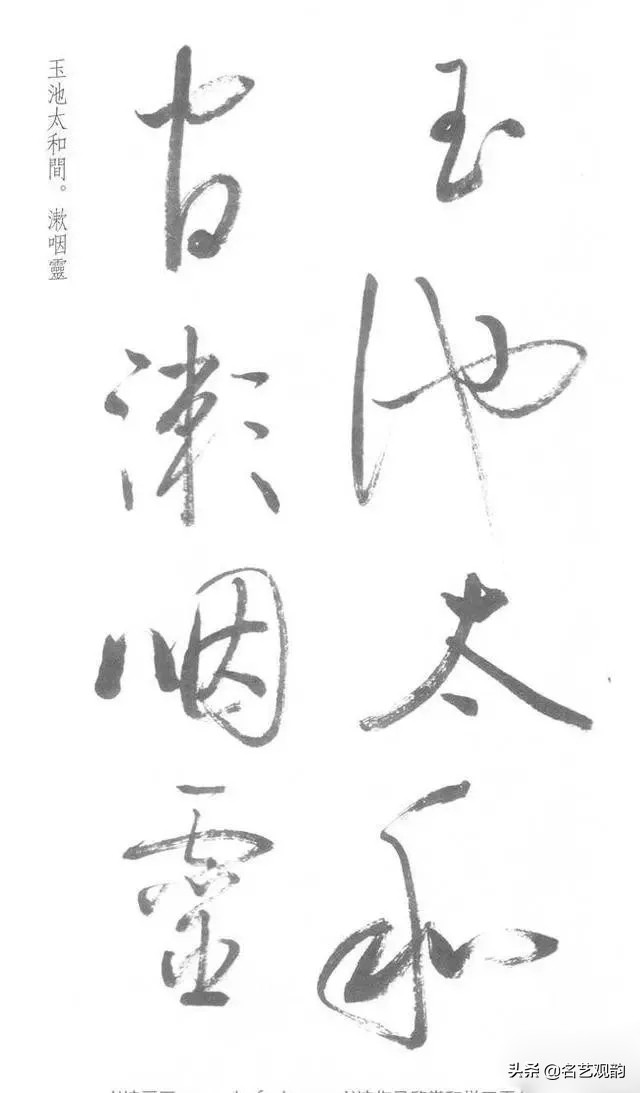 玉池太和
間漱咽靈
玉池太和間。漱咽靈
头条 @名艺观韵